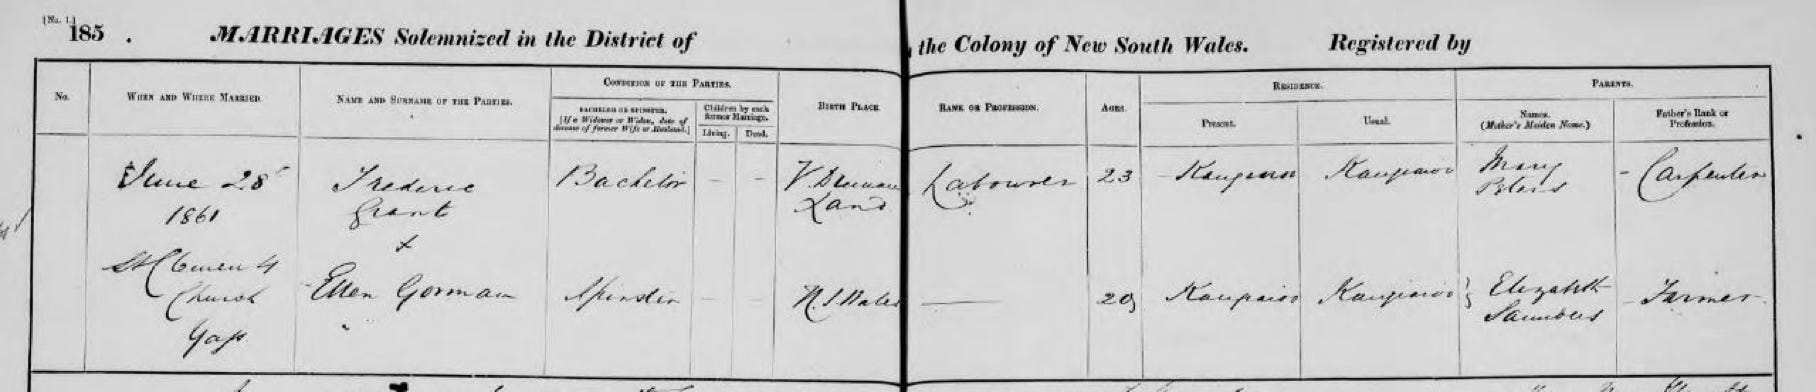 [No. 1.]
185 . MARRIAGES Solemnized in the District of the Colony of New South Wales. Registered by
No.
WHEN AND WHERE MARRIED.
NAME AND SURNAME OF THE PARTIES.
CONDITION OF THE PARTIES.
BACHELOR OR SPINSTER.
[If a Widower or Widow, date of
decease of former Wife or Husband.]
Children by each
former Marriage.
Living. Dead.
BIRTH PLACE
RANK OR PROFESSION.
AGES.
RESIDENCE.
Present. Usual.
PARENTS.
Names.
(Mother's Maiden Name.)
Father's Rank or
Profession.
June 28
1861
St Clement
Church
Yass
Frederic
Grant
+
Ellen Gorman
Bachelor - -
Spinster - -
V. Dieman
Land
N. S Wales
Labourer
23
20
Kangaroo Kangaroo
Kangaroo Kangaroo
Mary
Peters
Elizabeth
Saunders
- Carpenter
- Farmer